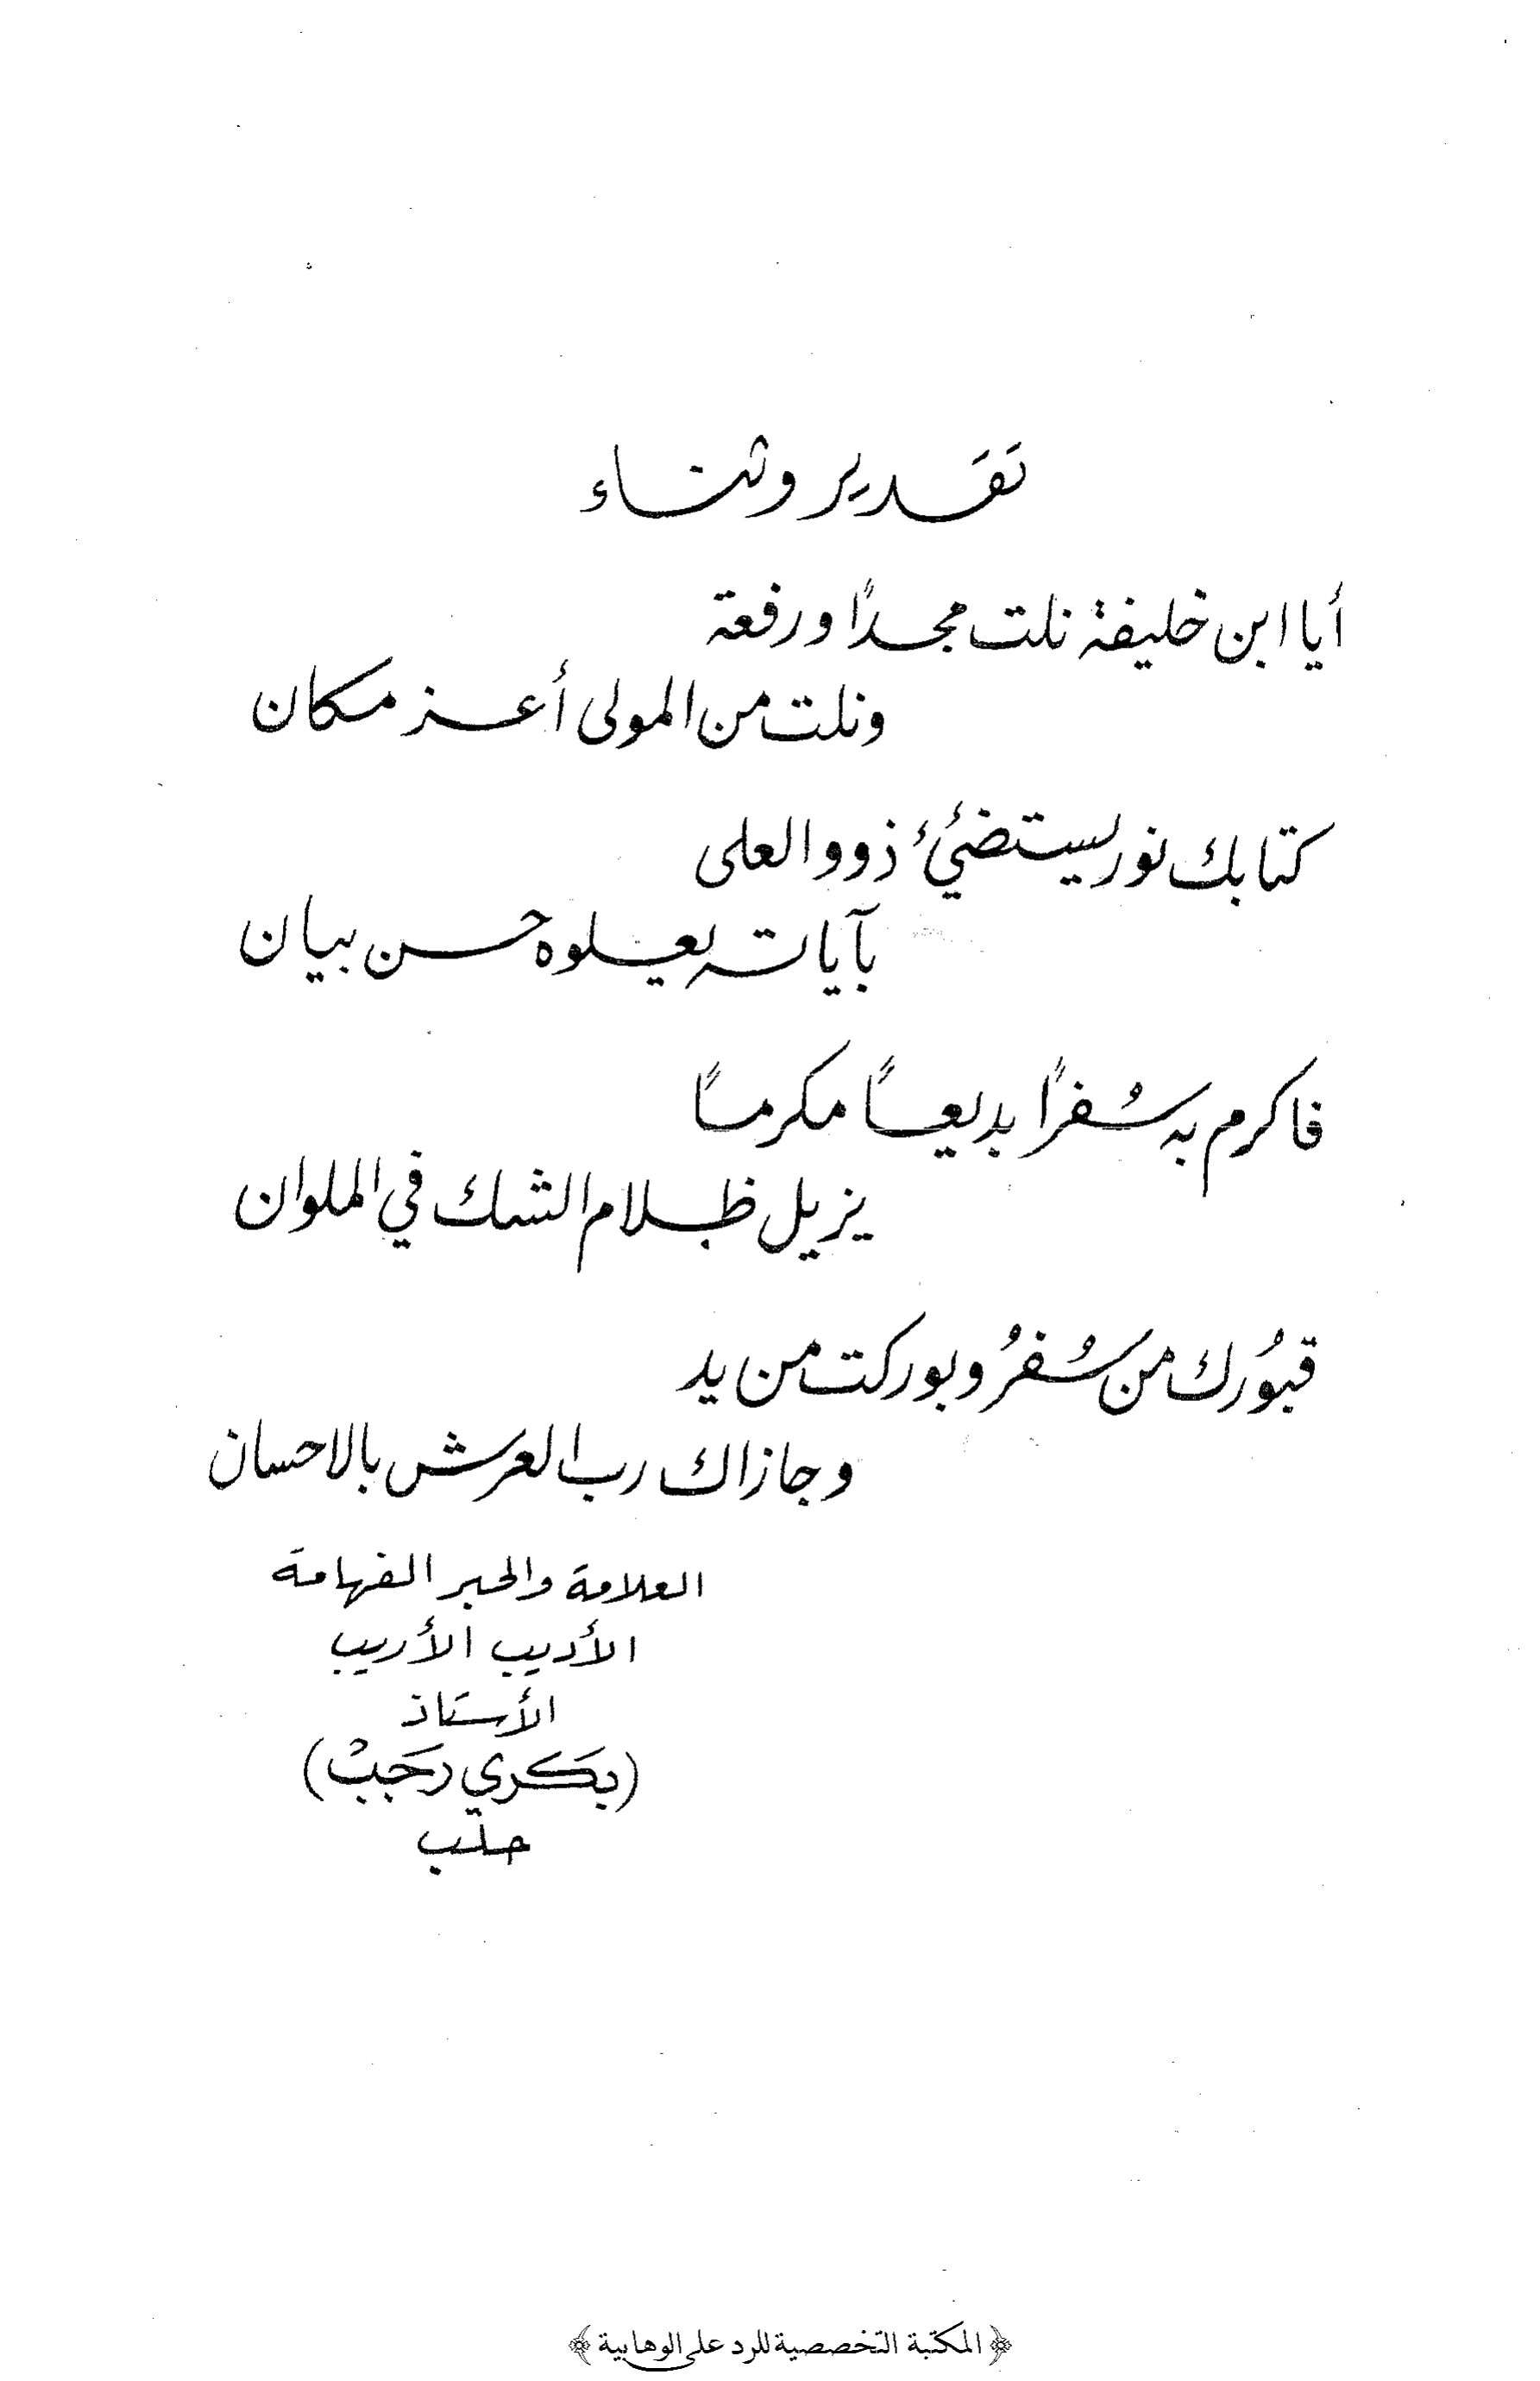 تقدير وثناء
أيا ابن خليفة نلت مجداً ورفعة
ونلت من المولى أعز مكان
كتابك نور يستضيئ ذوو العلى
بآياته يعلوه حسن بيان
فاكرم به سُفراً بديعاً مكرماً
يزيل ظلام الشك في الملوان
فبُورك من سُفرُ وبوركت من يد
وجازاك رب العرش بالاحسان
العلامة والحبر الفهامة
الأديب الأريب
الأستاذ
(بكري رجب)
حلب
﴿ المكتبة التخصصية للرد على الوهابية ﴾